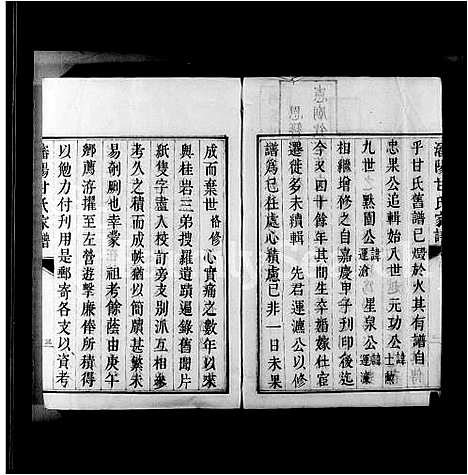 瀋陽甘氏家譜
乎甘氏舊譜已燬於火其有譜自
忠果公追輯始八世 元功公諱士
九世 黙園公諱運滄 星泉公諱運瀛
相繼增修之自嘉慶甲子刋印後迄
今又四十餘年其間生卒婚嫁仕宦
遷徙多未續輯 先君運漣公以修
譜爲已任處心積慮已非一日未果
成而棄世恪修心實痛之數年以來
與桂岩三弟搜羅遺蹟遍錄舊聞片
紙隻字盡入校訂旁支別派互相參
考久之積而成帙猶以簡牘甚繁未
易剞劂也幸蒙 祖考餘蔭由庚午
鄉薦洊擢至左營遊擊廉俸所積得
以勉力付刋用是郵寄各支以資考
瀋陽甘氏家譜
三